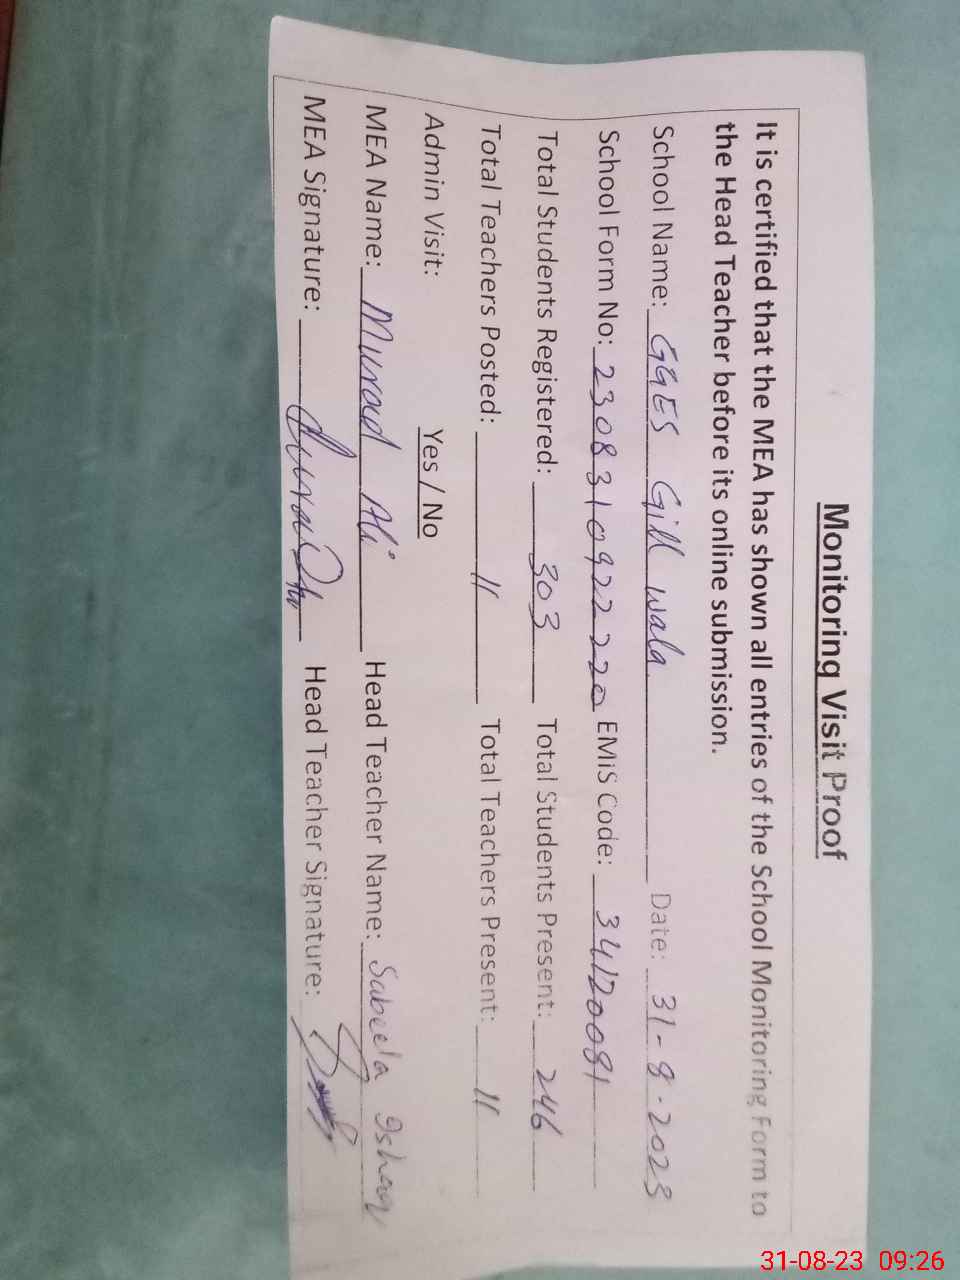 Monitoring Visit Proof
It is certified that the MEA has shown all entries of the School Monitoring Form to
the Head Teacher before its online submission.
School Name: GGES Gill wala Date: 31-8-2023
School Form No: 230831092220 EMiS Code: 34120081
Total Students Registered: 303 Total Students Present: 246
Total Teachers Posted: 11 Total Teachers Present: 11
Admin Visit: Yes / No
MEA Name: Murad Ali Head Teacher Name: Sabeela Ishaq
MEA Signature: Head Teacher Signature:
31-08-23 09:26